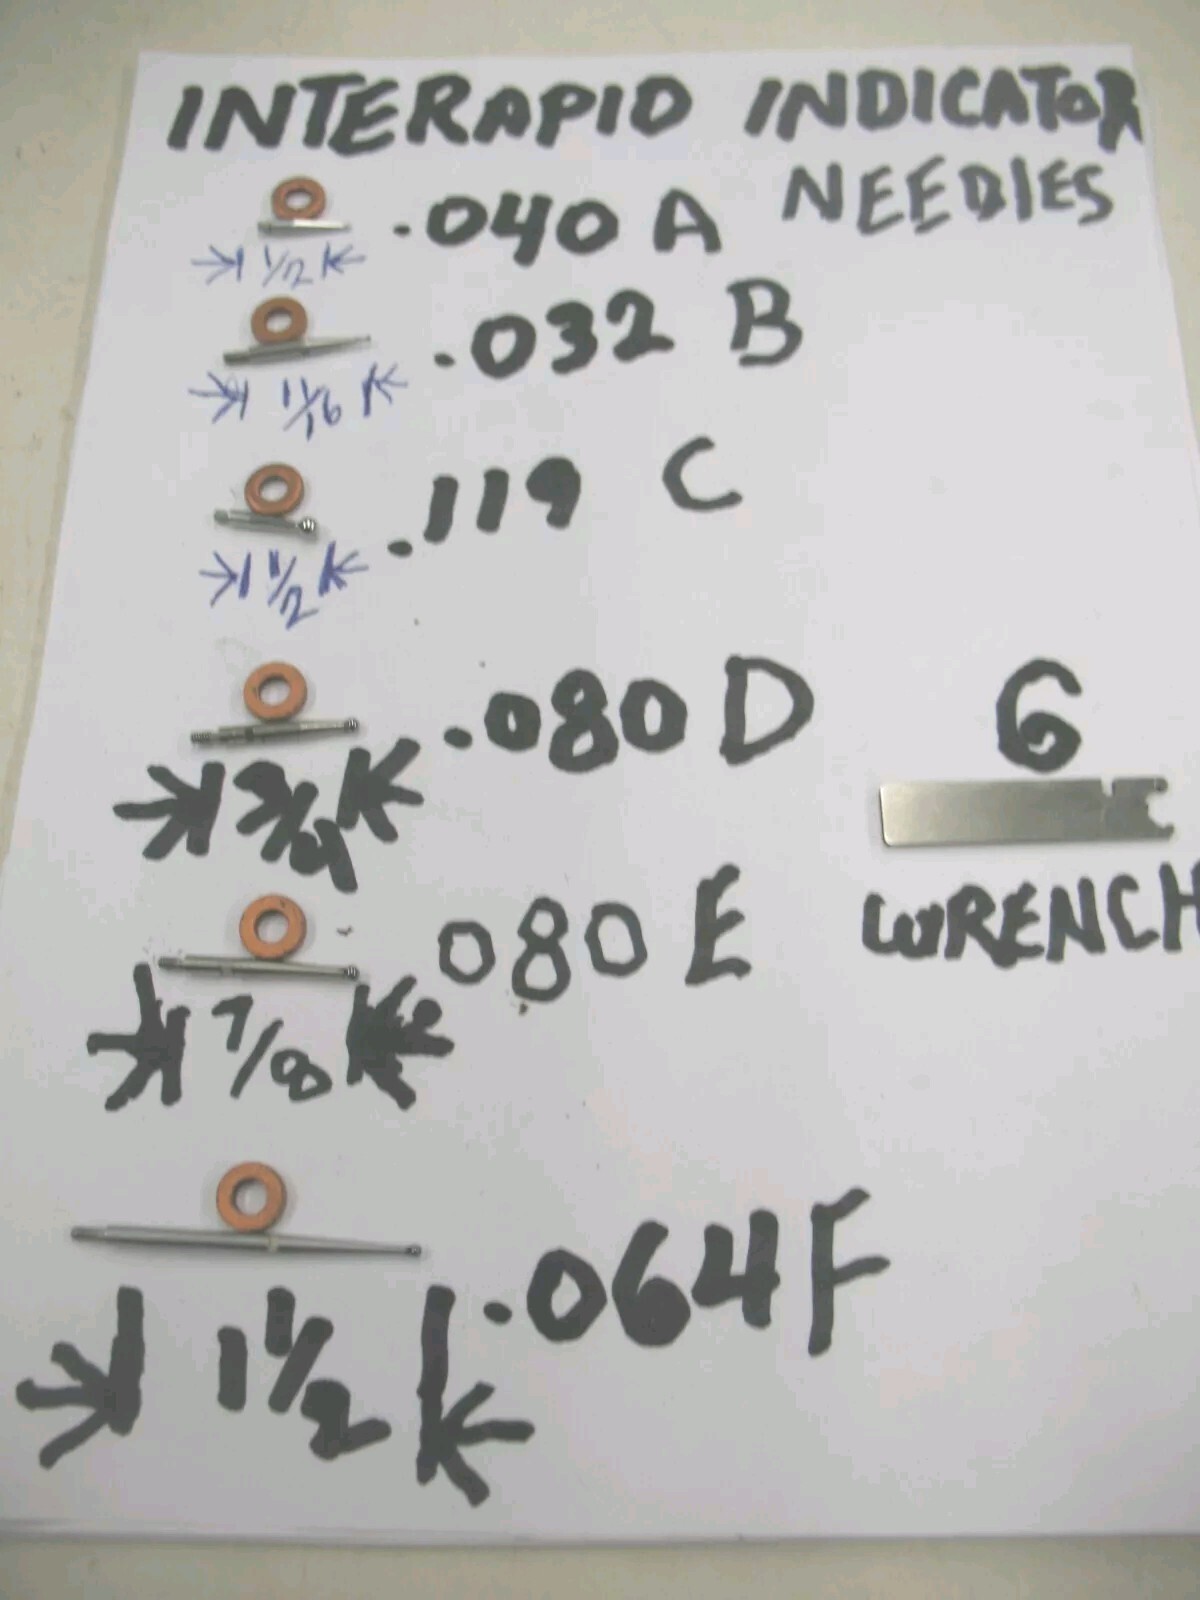 INTERAPID INDICATOR
NEEDLES
.040 A
1/2
.032 B
11/16
.119 C
1/2
.080 D
3/4
6
WRENCH
080 E
7/8
.064 F
1 1/2